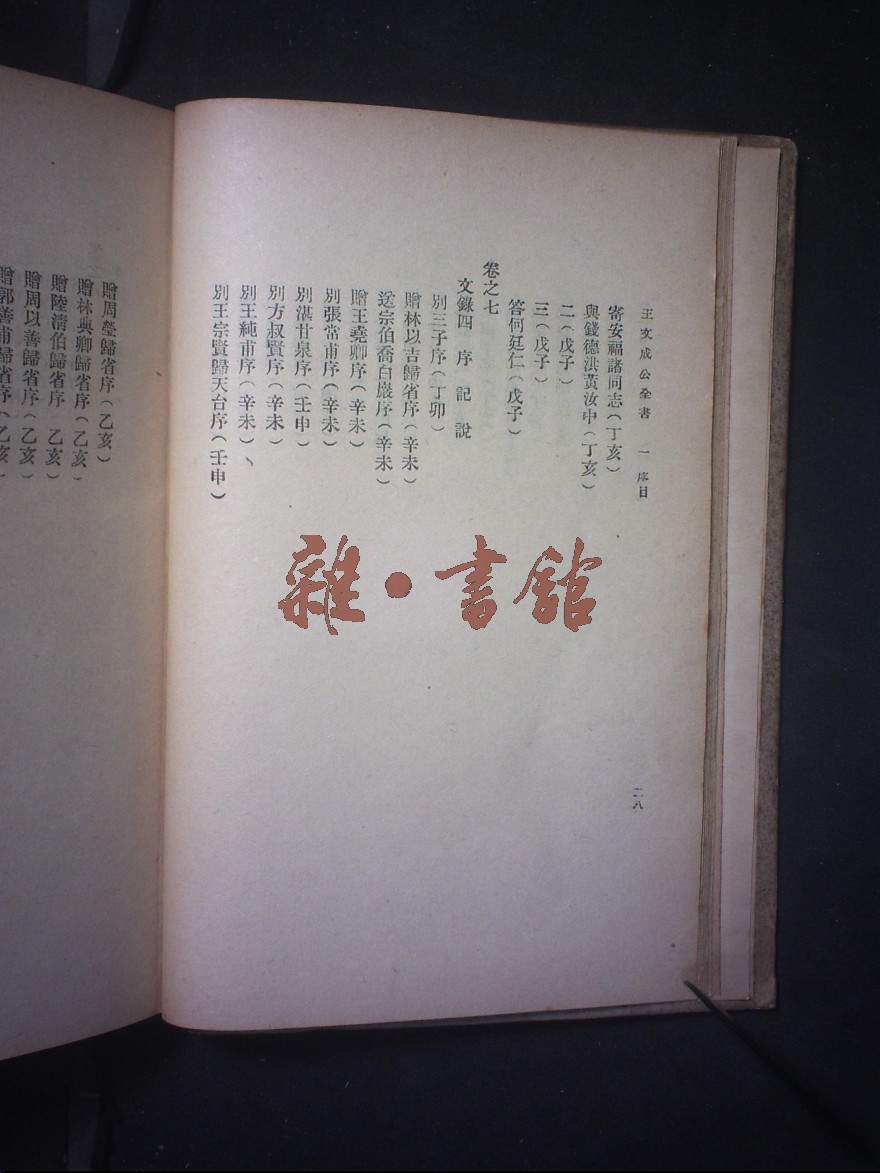 王文成公全書 一 序目
寄安福諸同志(丁亥)
與錢德洪黃汝中(丁亥)
二(戊子)
三(戊子)
答何廷仁(戊子)
卷之七
文錄四 序 記 說
別三子序(丁卯)
贈林以吉歸省序(辛未)
送宗伯喬白巖序(辛未)
贈王堯卿序(辛未)
別張常甫序(辛未)
別湛甘泉序(壬申)
別方叔賢序(辛未)
別王純甫序(辛未)
別王宗賢歸天台序(壬申)
二八
贈周瑩歸省序(乙亥)
贈林典卿歸省序(乙亥)
贈陸清伯歸省序 乙亥)
贈周以善歸省序(乙亥)
贈郭善甫歸省序(乙亥)
雜·書館